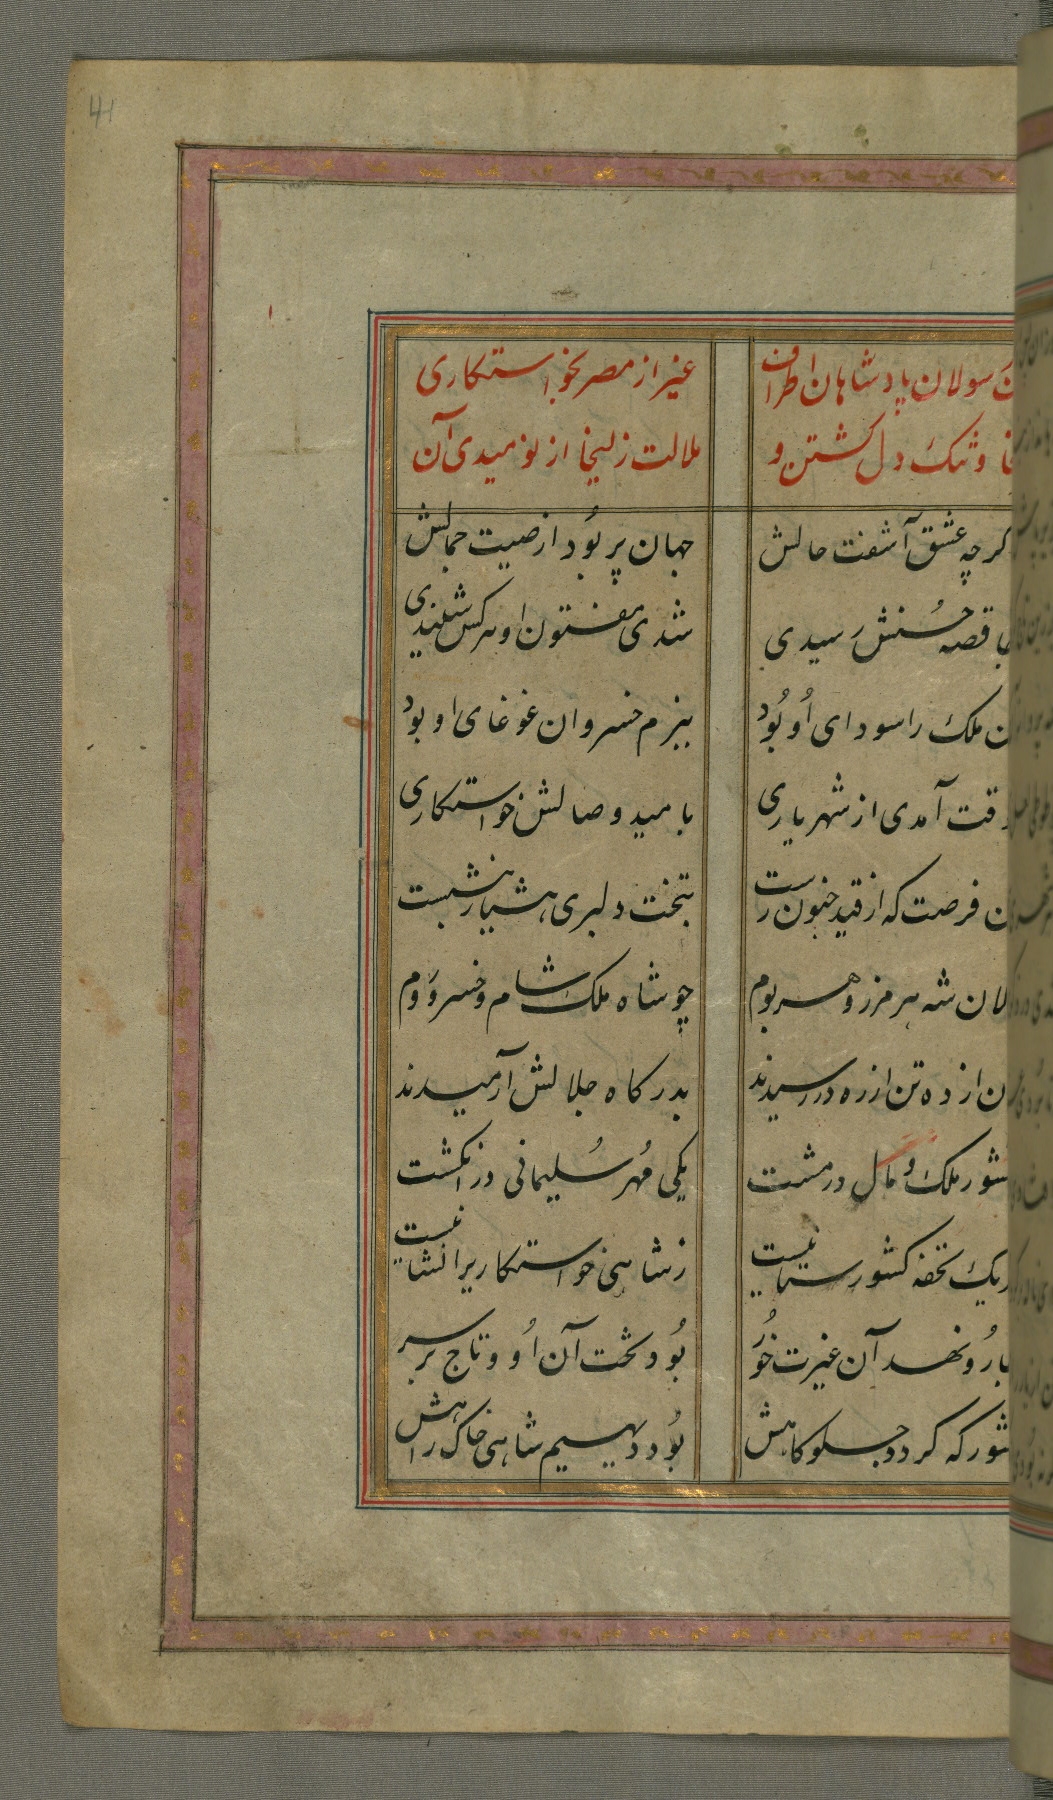 41
رسولان پادشاهان اطراف غیر از مصر بخواستکاری
و تنک دل کشتن و ملالت زلیخا از نومیدی آن
کرچه عشق آشفت حالش جهان پر بُود از صیت جمالش
قصه حُسنش رسیدی شدی مفتون او هرکس شنیدی
ملک را سودای اُو بُود ببزم خسروان غوغای او بود
وقت آمدی از شهریاری بامید وصالش خواستکاری
فرصت که از قید جنون رست بتخت دلبری هشیار بنشست
شه هر مرز و هر بوم چو شاه ملک شام و خسرو روم
از ده تن از ره در رسیدند بدرکاه جلالش آرمیدند
ملک و مال در مشت یکی مُهر سُلیمانی در انکشت
یک تحفه کشورستانیست ز شاهی خواستکاریرا نشانیست
رُو نهد آن غیرت خُور بُود تخت آن اُو و تاج بر سر
که کردد جلوکاهش بُود دیهیم شاهی خاک راهش